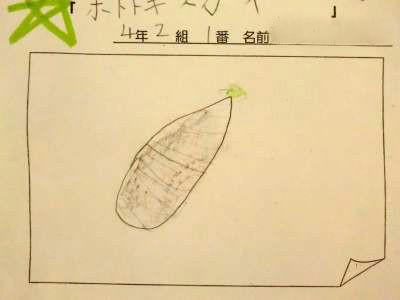 「ホトトギスガイ」
4年2組 1番 名前